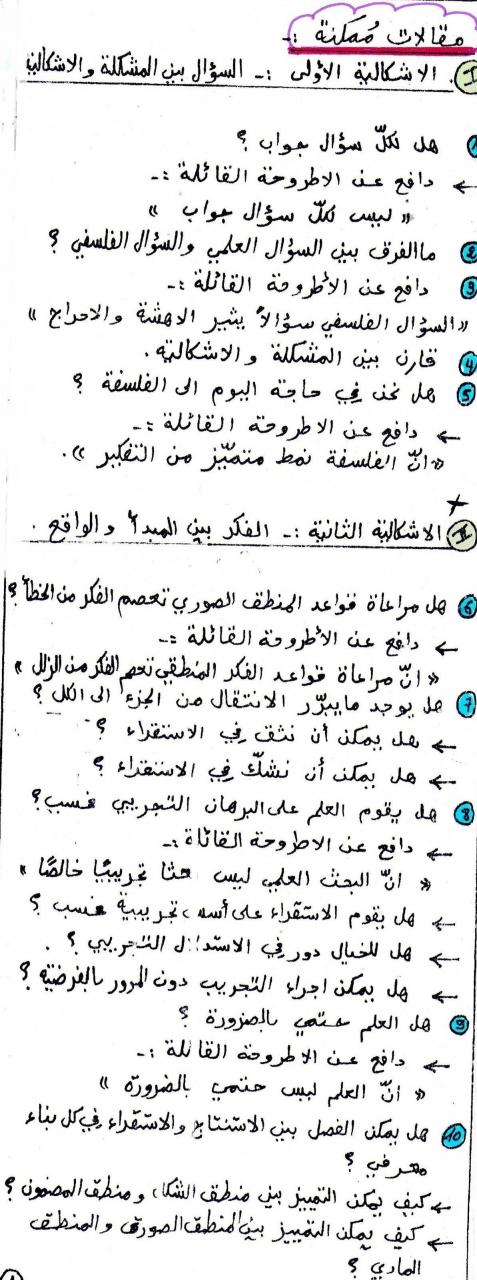 مقالات مُمكنة :-
I. الاشكالية الأولى :- السؤال بين المشكلة والاشكالية
1 هل لكلّ سؤال جواب ؟
← دافع عن الاطروحة القائلة :-
« ليس لكلّ سؤال جواب »
2 ما الفرق بين السؤال العلمي والسؤال الفلسفي ؟
3 دافع عن الأطروحة القائلة :-
« السؤال الفلسفي سؤالاً يثير الاهشة والاحراج »
4 قارن بين المشكلة والاشكالية .
5 هل نحن في حاجة اليوم الى الفلسفة ؟
← دافع عن الاطروحة القائلة :-
« انّ الفلسفة نمط متميّز من التفكير ».
II الاشكالية الثانية :- الفكر بين المبدأ والواقع .
6 هل مراعاة قواعد المنطق الصوري تعصم الفكر من الخطأ ؟
← دافع عن الأطروحة القائلة :-
« انّ مراعاة قواعد الفكر المنطقي تعصم الفكر من الزلل »
7 هل يوجد ما يبرّر الانتقال من الجزء الى الكل ؟
← هل يمكن أن نثق في الاستقراء ؟
← هل يمكن أن نشكّ في الاستقراء ؟
8 هل يقوم العلم على البرهان التجريبي فحسب ؟
← دافع عن الاطروحة القائلة :-
« انّ البحث العلمي ليس بحثا تجريبيًا خالصًا »
← هل يقوم الاستقراء على أسس تجريبية فحسب ؟
← هل للخيال دور في الاستدلال التجريبي ؟ .
← هل يمكن اجراء التجريب دون المرور بالفرضية ؟
9 هل العلم حتمي بالضرورة ؟
← دافع عن الاطروحة القائلة :-
« انّ العلم ليس حتمي بالضرورة »
10 هل يمكن الفصل بين الاستنتاج والاستقراء في كل بناء
معرفي ؟
← كيف يمكن التمييز بين منطق الشكل ومنطق المضمون ؟
← كيف يمكن التمييز بين المنطق الصوري والمنطق
المادي ؟